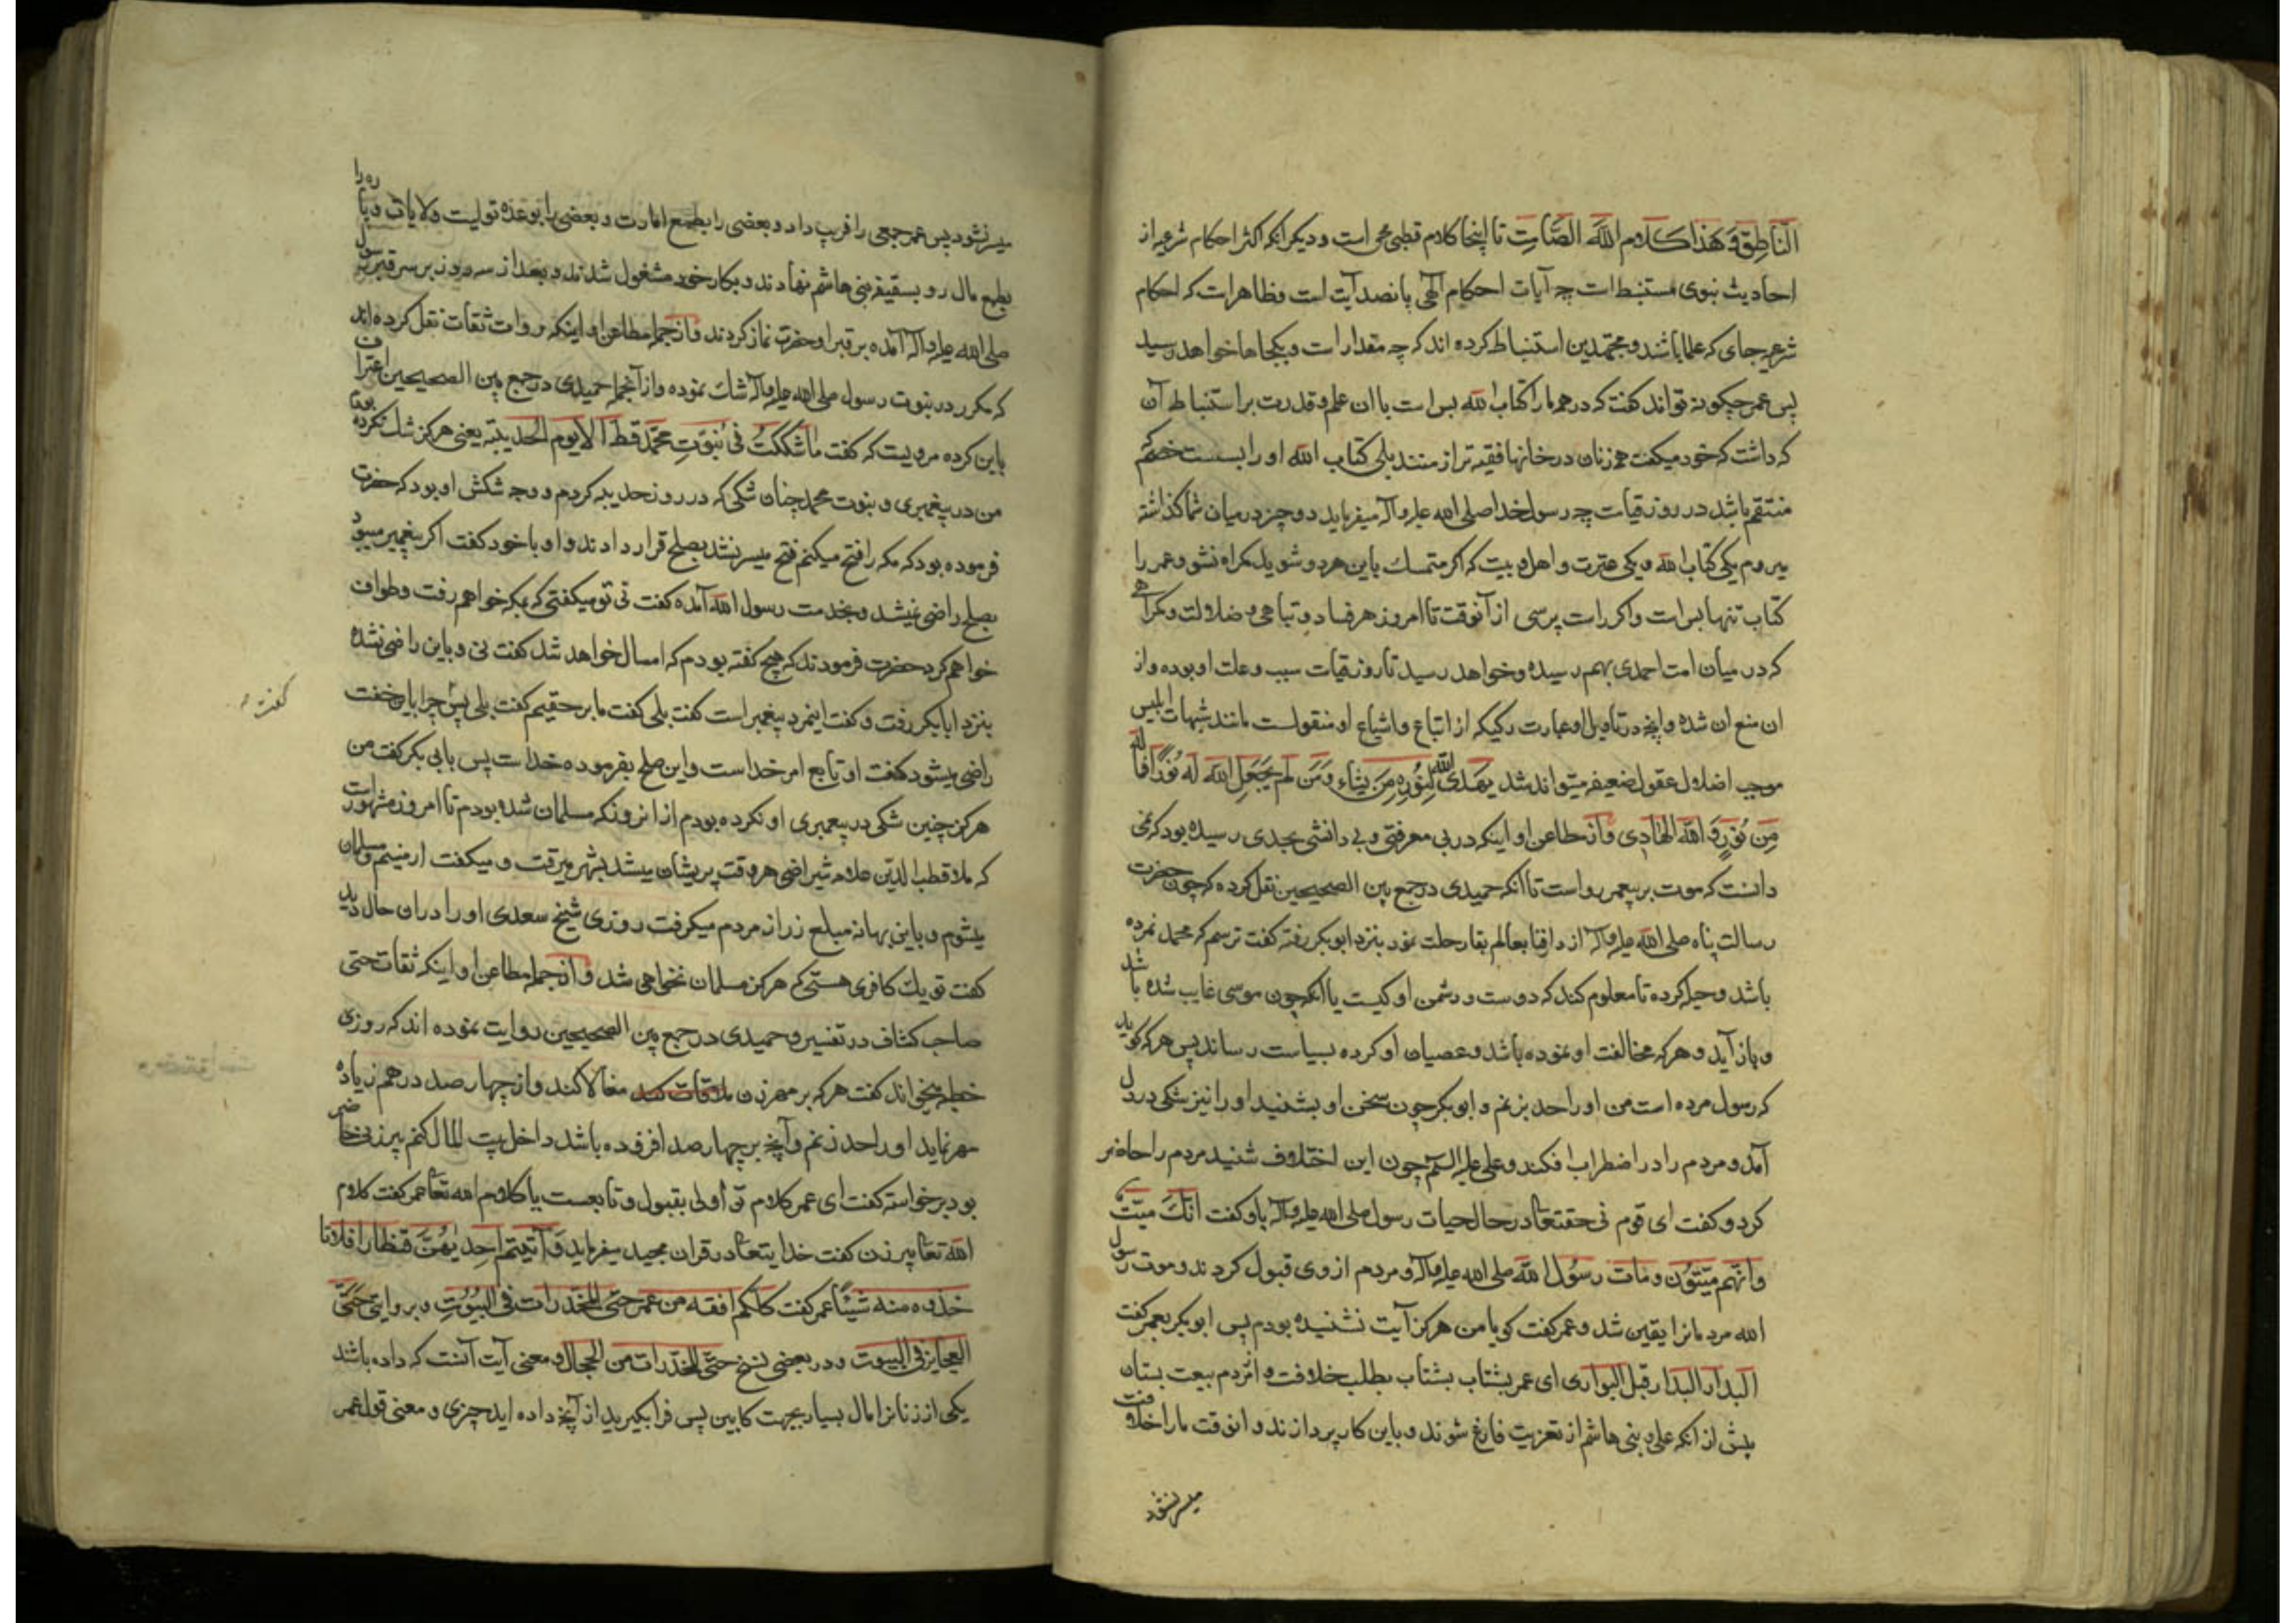 الناطق و هذا کلام الله الصامت تا اینجا کلام قطبی محی است و دیگر انکه اکثر احکام شرعیه از
احادیث نبوی مستنبط است چه آیات احکام الهی پانصد آیت است و ظاهر است که احکام
شرعیه جای که علما باشند و مجتهدین استنباط کرده اند که چه مقدار است و بکجاها خواهد رسید
پس عمر چگونه تواند گفت که در همه ما را کتاب الله بس است با ان علم و قدرت بر استنباط آن
که داشت که خود میگفت همه زنان در خانها فقیه تر از منند بلی کتاب الله او را بسست خصم که
منتقم باشد در روز قیامت چه رسول خدا صلی الله علیه و آله میفرماید دو چیز در میان شما گذاشته
میروم یکی کتاب الله و یکی عترت و اهل بیت که اگر متمسک باین هر دو شوید گمراه نشوید و عمر را
کتاب تنها بس است و اگر راست پرسی از آنوقت تا امروز هر فساد و تباهی و ضلالت و گمراهی
که در میان امت احمدی بهم رسیده و خواهد رسید تا روز قیامت سبب و علت او بوده و از
ان منع ان شده و انچه در تاویل او عبارت رکیکه از اتباع و اشیاع او منقولست مانند شبهات ابلیس
موجب اضلال عقول ضعیفه میتواند شد یهدی الله لنوره من یشاء و من لم یجعل الله له نورا فما له
من نور و الله الهادی و از مطاعن او اینکه در بی معرفتی و بی دانشی بحدی رسیده بود که نمی
دانست که موت بر پیغمبر رواست تا انکه حمیدی در جمع بین الصحیحین نقل کرده که چون حضرت
رسالت پناه صلی الله علیه و آله از دار فنا بعالم بقا رحلت نمود بنزد ابوبکر رفته گفت ترسم که محمد نمرده
باشد و حیله کرده تا معلوم کند که دوست و دشمن او کیست یا انکه چون موسی غایب شده باشد
و باز آید و هر که مخالفت او نموده باشد و عصیان او کرده بسیاست رساند پس هر که گوید
که رسول مرده است من او را حد بزنم و ابوبکر چون سخن او بشنید او را نیز شکی در دل
آمد و مردم را در اضطراب افکند و علی علیه السلم چون این اختلاف شنید مردم را حاضر
کرد و گفت ای قوم نی حقتعالی در حال حیات رسول صلی الله علیه و آله باو گفت انک میت
و انهم میتون و مات رسول الله صلی الله علیه و آله و مردم از وی قبول کردند و موت رسول
الله مردمانرا یقین شد و عمر گفت گویا من هرگز آیت نشنیده بودم پس ابوبکر بعمر گفت
البدار البدار قبل البوار ای عمر بشتاب بشتاب بطلب خلافت و از مردم بیعت بستان
پیش از انکه علی و بنی هاشم از تعزیت فارغ شوند و باین کار پردازند و انوقت ما را خلافت
میسر نشود
میسر نشود پس عمر جمعی را فریب داد و بعضی را بطمع امارت و بعضی را بوعده تولیت ولایات و پاره را
بطمع مال رو بسقیفه بنی هاشم نهادند و بکار خود مشغول شدند و بعد از سه روز بر سر قبر رسول
صلی الله علیه و آله آمده بر قبر او حضرت نماز کردند و از جمله مطاعن او اینکه روات ثقات نقل کرده اند
که مکرر در نبوت رسول صلی الله علیه و آله شک نموده و از آنجمله حمیدی در جمع بین الصحیحین اعتراف
باین کرده مرویست که گفت ما شککت فی نبوت محمد قط الا یوم الحدیبیه یعنی هرگز شک نکرده بودم
من در پیغمبری و نبوت محمد چنان شکی که در روز حدیبیه کردم و وجه شکش او بود که حضرت
فرموده بود که مکه را فتح میکنم فتح میسر نشد بصلح قرار دادند و او با خود گفت اگر پیغمبر میبود
بصلح راضی نمیشد و بخدمت رسول الله آمده گفت نی تو میگفتی که بمکه خواهم رفت و طواف
خواهم کرد حضرت فرمودند که هیچ گفته بودم که امسال خواهد شد گفت نی و باین راضی نشده
بنزد ابابکر رفت و گفت اینمرد پیغمبر است گفت بلی گفت ما بر حقیم گفت بلی پس چرا باین خفت
گفت
راضی میشود گفت او تابع امر خداست و این صلح بفرموده خداست پس بابی بکر گفت من
هرگز چنین شکی در پیغمبری او نکرده بودم از انروز که مسلمان شده بودم تا امروز مشهور است
که ملا قطب الدین علامه شیرازی هر وقت پریشان میشد بشهر میرفت و میگفت ارمنیم و مسلمان
میشوم و باین بهانه مبلغ زر از مردم میگرفت روزی شیخ سعدی او را در ان حال دید
گفت تو یک کافری هستی که هرگز مسلمان نخواهی شد و از جمله مطاعن او اینکه ثقات حتی
صاحب کشاف در تفسیر و حمیدی در جمع بین الصحیحین روایت نموده اند که روزی
خطبه میخواند گفت هر که بر مهر زن مغالا کند و از چهار صد درهم زیاده
مهر نماید او را حد زنم و آنچه بر چهار صد افزوده باشد داخل بیت المال کنم پیر زنی حاضر
بود برخواسته گفت ای عمر کلام تو اولی بقبول و تابعست یا کلام الله تعالی عمر گفت کلام
الله تعالی پیر زن گفت خدایتعالی در قران مجید میفرماید و آتیتم احدیهن قنطارا فلا تا
خذوه منه شیئا عمر گفت کلکم افقه من عمر حتی المخدرات فی البیوت و بروایتی حتی
العجایز فی البیوت و در بعضی نسخ حتی المخدرات من الحجال و معنی آیت آنست که داده باشد
یکی از زنانرا مال بسیار بجهت کابین پس فرا بگیرید از آنچه داده اید چیزی و معنی قول عمر